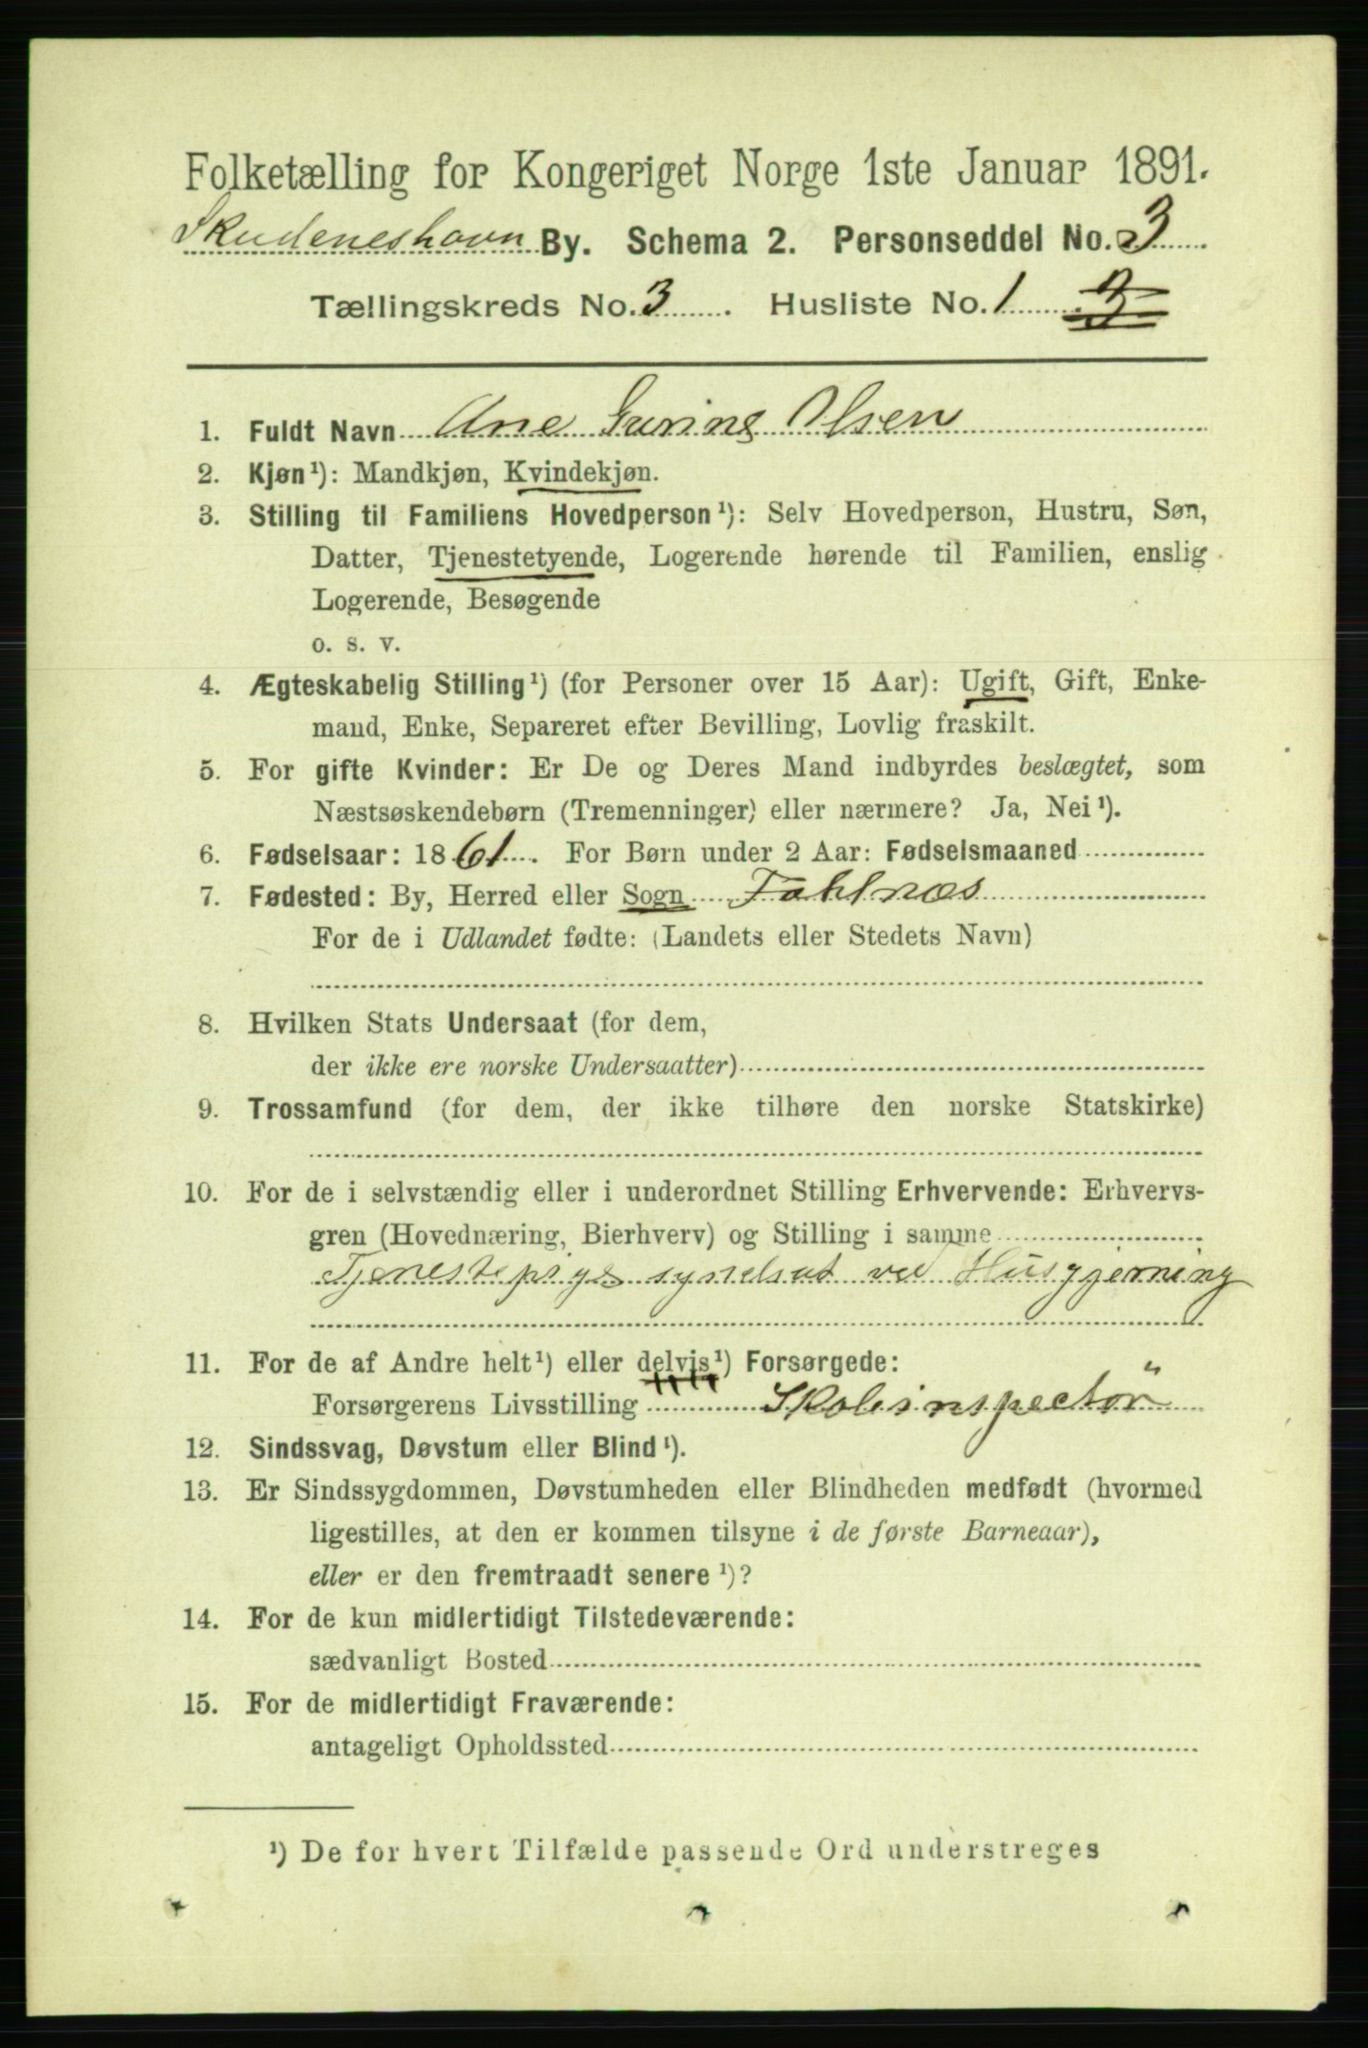 Folketælling for Kongeriget Norge 1ste Januar 1891.
Skudeneshavn By. Schema 2. Personseddel No. 3
Tællingskreds No. 3. Husliste No. 1 3
1. Fuldt Navn Ane Gurine Olsen
2. Kjøn¹): Mandkjøn, Kvindekjøn.
3. Stilling til Familiens Hovedperson¹): Selv Hovedperson, Hustru, Søn,
Datter, Tjenestetyende, Logerende hørende til Familien, enslig
Logerende, Besøgende
o. s. v.
4. Ægteskabelig Stilling¹) (for Personer over 15 Aar): Ugift, Gift, Enke-
mand, Enke, Separeret efter Bevilling, Lovlig fraskilt.
5. For gifte Kvinder: Er De og Deres Mand indbyrdes beslægtet, som
Næstsøskendebørn (Tremenninger) eller nærmere? Ja, Nei¹).
6. Fødselsaar: 1861. For Børn under 2 Aar: Fødselsmaaned
7. Fødested: By, Herred eller Sogn Fahlnæs
For de i Udlandet fødte: (Landets eller Stedets Navn)
8. Hvilken Stats Undersaat (for dem,
der ikke ere norske Undersaatter)
9. Trossamfund (for dem, der ikke tilhøre den norske Statskirke)
10. For de i selvstændig eller i underordnet Stilling Erhvervende: Erhvervs-
gren (Hovednæring, Bierhverv) og Stilling i samme
Tjenestepige synelsat ved Husgjerning
11. For de af Andre helt¹) eller delvis¹) Forsørgede:
Forsørgerens Livsstilling Skoleinspectör
12. Sindssvag, Døvstum eller Blind¹).
13. Er Sindssygdommen, Døvstumheden eller Blindheden medfødt (hvormed
ligestilles, at den er kommen tilsyne i de første Barneaar),
eller er den fremtraadt senere¹)?
14. For de kun midlertidigt Tilstedeværende:
sædvanligt Bosted
15. For de midlertidigt Fraværende:
antageligt Opholdssted
¹) De for hvert Tilfælde passende Ord understreges